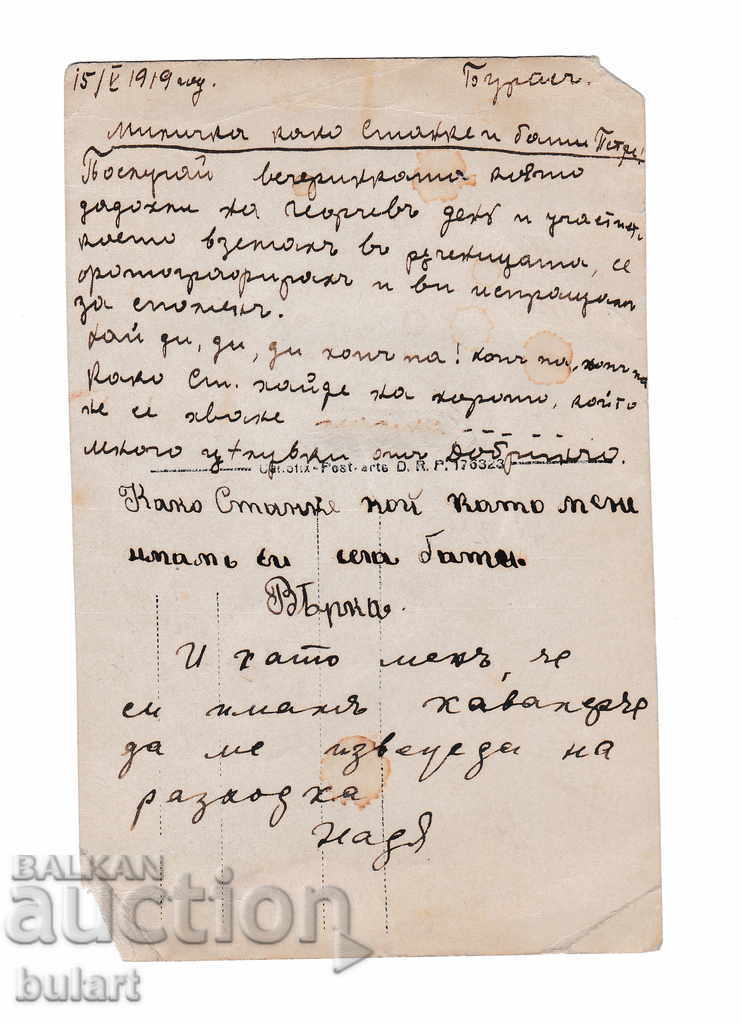 15/V 1919 год. Бургас.
Миличка како Станке и бати Петре!
По случай вечеринката която
дадохми на Георгевъ день и участие,
което взехмъ въ ръченицата, се
фотографирахъ и ви испращамъ
за споменъ.
Хай ди, ди, ди хопъ па! хопъ па, хопъ па
Како Ст. хайде на хорото, който
не се хване
много цѣлувки отъ Добринчо.
Postkarte D. R. P. 176323
Како Станке кой като мене
имамъ си сега батe.
Вѣрка.
И като менъ, че
си имамъ кавалерче
да ме извежда на
разходка
Надя
BALKAN
auction
bulart